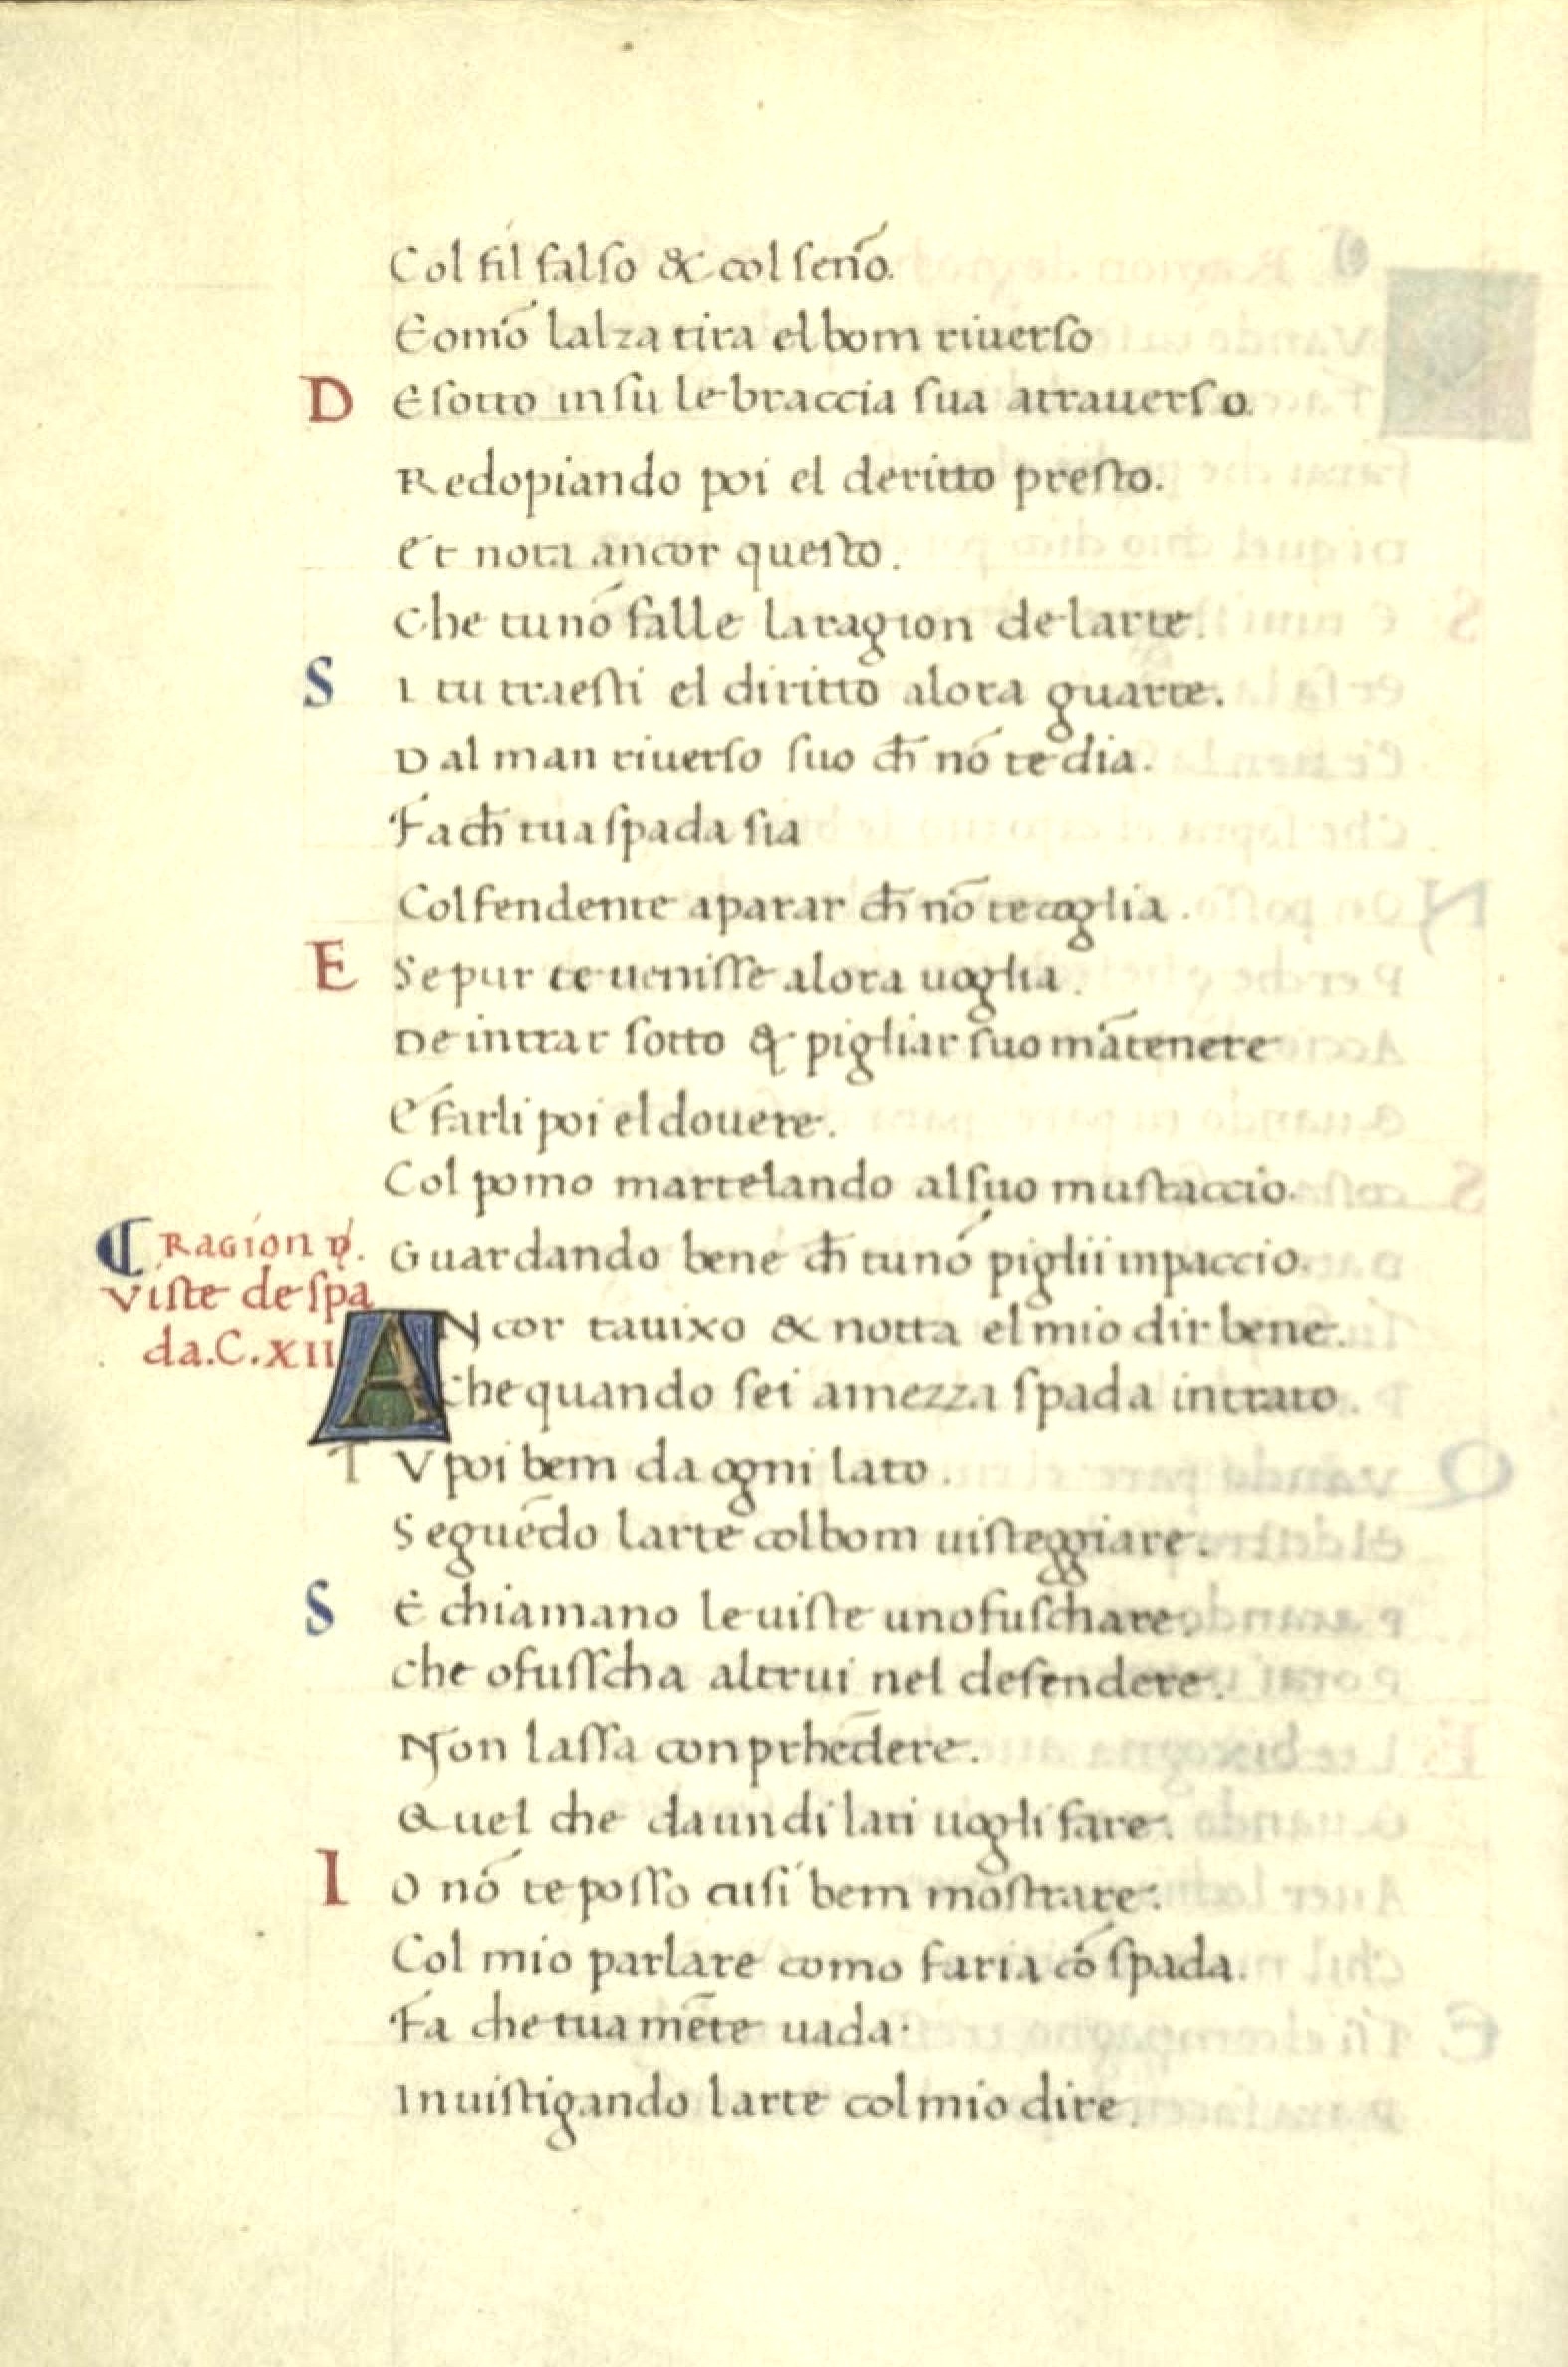 Col fil falso & col señо.
E omō lalza tira el bom riuerso
D Esotto in su le braccia sua atrauerso.
Redopiando poi el deritto presto.
Et nota ancor questo.
Che tu nō falle la ragion de larte.
S I tu traesti el diritto alora guarte.
Dal man riuerso suo ch̄ nō te dia.
Fa ch̄ tua spada sia
Col fendente aparar ch̄ nō te coglia.
E Se pur te uenisse alora uoglia.
De intrar sotto & pigliar suo mātenere
E farli poi el douere.
Col pomo martelando al suo mustaccio.
Guardando bene ch̄ tu nō piglii inpaccio.
Ragion
Viste de spa
da. C. XII
ANcor tauixo & notta el mio dir bene.
Che quando sei a mezza spada intrato.
T V poi bem da ogni lato.
Seguēdo larte col bom uisteggiare.
S E chiamano le uiste uno fuschare.
che ofusscha altrui nel defendere.
Non lassa conprhēdere.
Quel che da un di lati uogli fare.
I O nō te posso cusi bem mostrare.
Col mio parlare como faria cō spada.
Fa che tua mēte uada.
Inuistigando larte col mio dire.